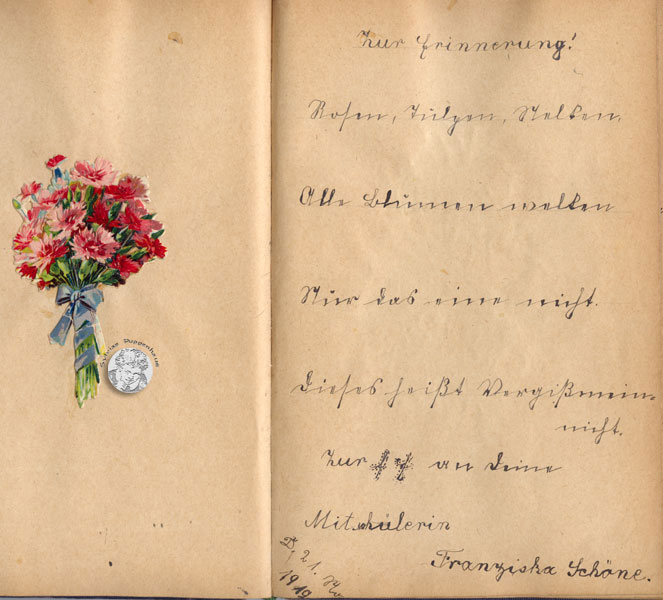 Zur Erinnerung!
Rosen, Tulpen, Nelken.
Alle Blumen welken
Nur das eine nicht.
Dieses heißt Vergißmein-
nicht.
Zur an deine
Mitschülerin
Franziska Schöne.
D. 21.
1919
Sylvias Puppenhaus